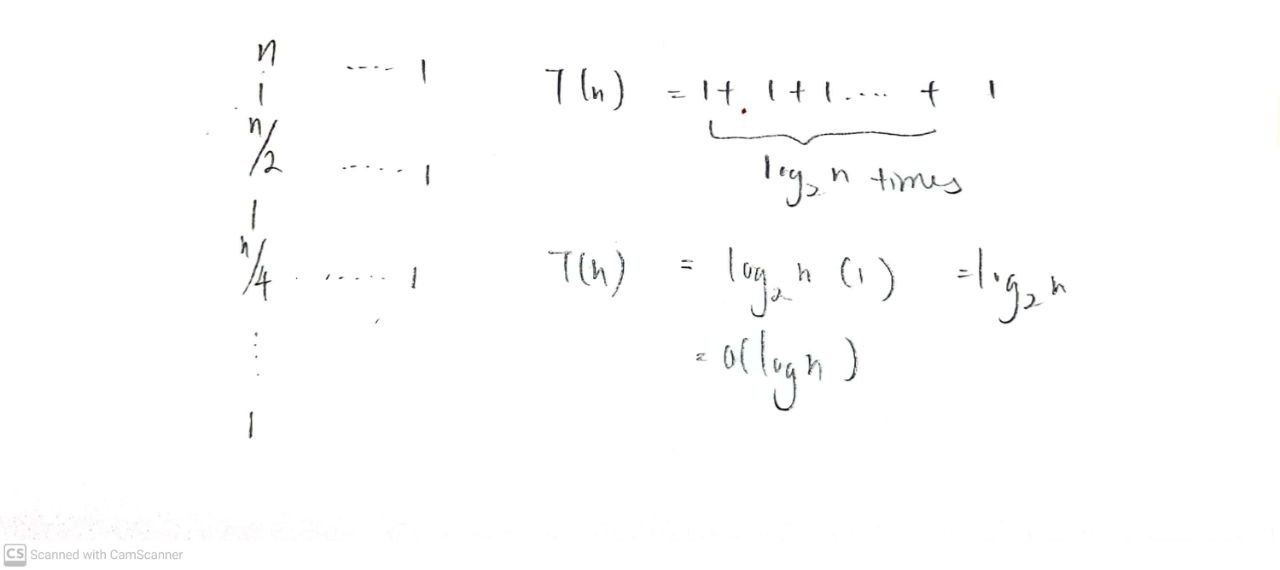 n ---- 1
|
n/2 ------ 1
|
n/4 ------ 1
⋮
1
T(n) = 1 + 1 + 1 .... + 1
log₂ n times
T(n) = log₂ n (1) = log₂ n
= O(log n)
CS Scanned with CamScanner